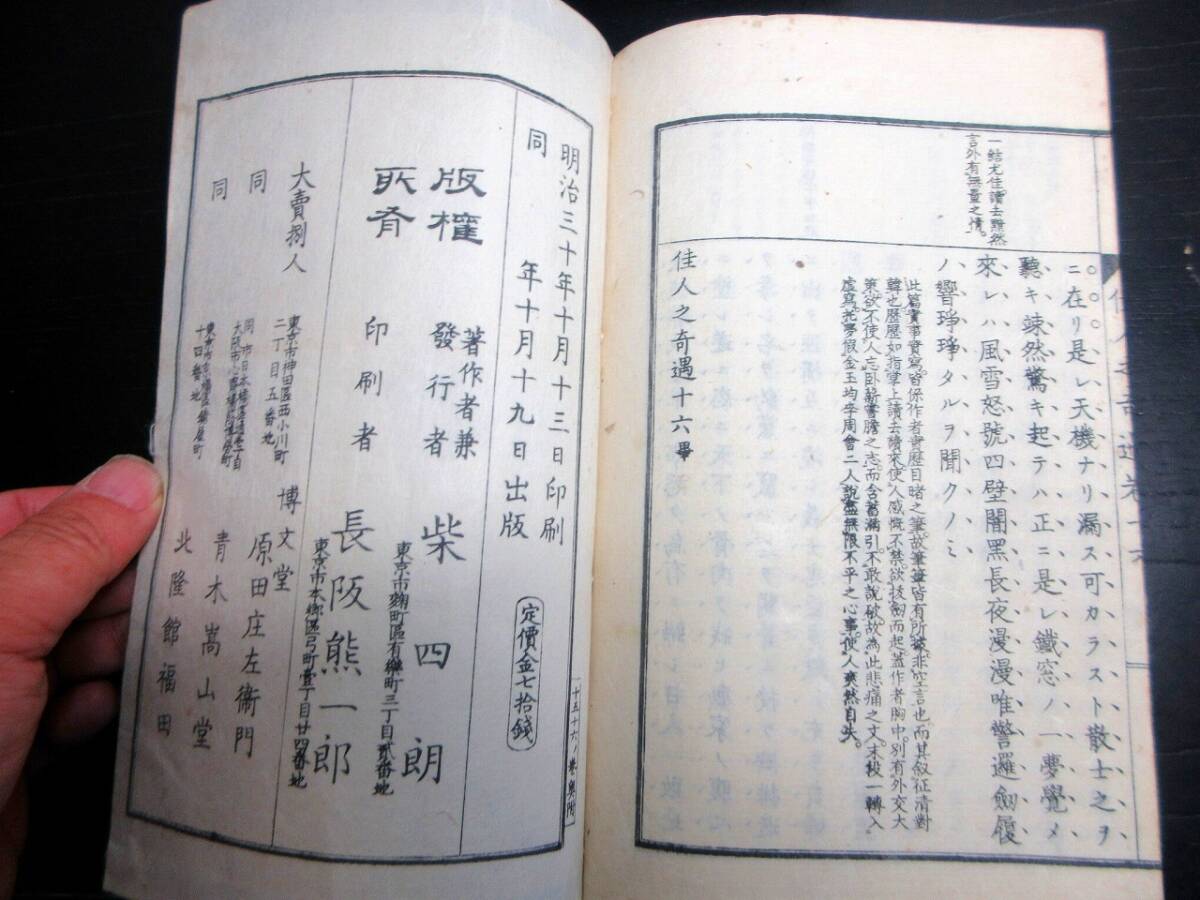 一結尤佳讀去黯然
言外有無量之情。
佳人之奇遇卷十六
ニ在リ是レ天機ナリ漏ス可カラスト散士之ヲ
聽キ竦然驚キ起テハ正ニ是レ鐵窓ノ一夢覺メ
來レハ風雪怒號四壁闇黑長夜漫漫唯警邏劒履
ノ響琤琤タルヲ聞クノミ
此篇實事實寫。皆係作者實歷目睹之筆。故筆筆皆有所據。非空言也。而其叙征清對
韓也。歷歷如指掌上。讀去讀來。使人感慨不禁。欲拔劒而起。蓋作者胸中。別有外交大
策。欲不使人忘臥薪嘗膽之志。而含蓄滿引。不敢說破。故爲此悲痛之文。末段一轉入
虛寫。托夢假金玉均李周會二人。說盡無限不平之心事。使人爽然自失。
佳人之奇遇十六畢
十五十六ノ卷奧附
明治三十年十月十三日印刷
同年十月十九日出版
定價金七拾錢
版權
所有
著作者兼
發行者
柴四朗
東京市麴町區有樂町三丁目貳番地
印刷者
長阪熊一郎
東京市本鄕區弓町壹丁目廿四番地
大賣捌人
東京市神田區西小川町
二丁目五番地
博文堂
同
原田庄左衞門
同
靑木嵩山堂
十四番地
北隆館福田